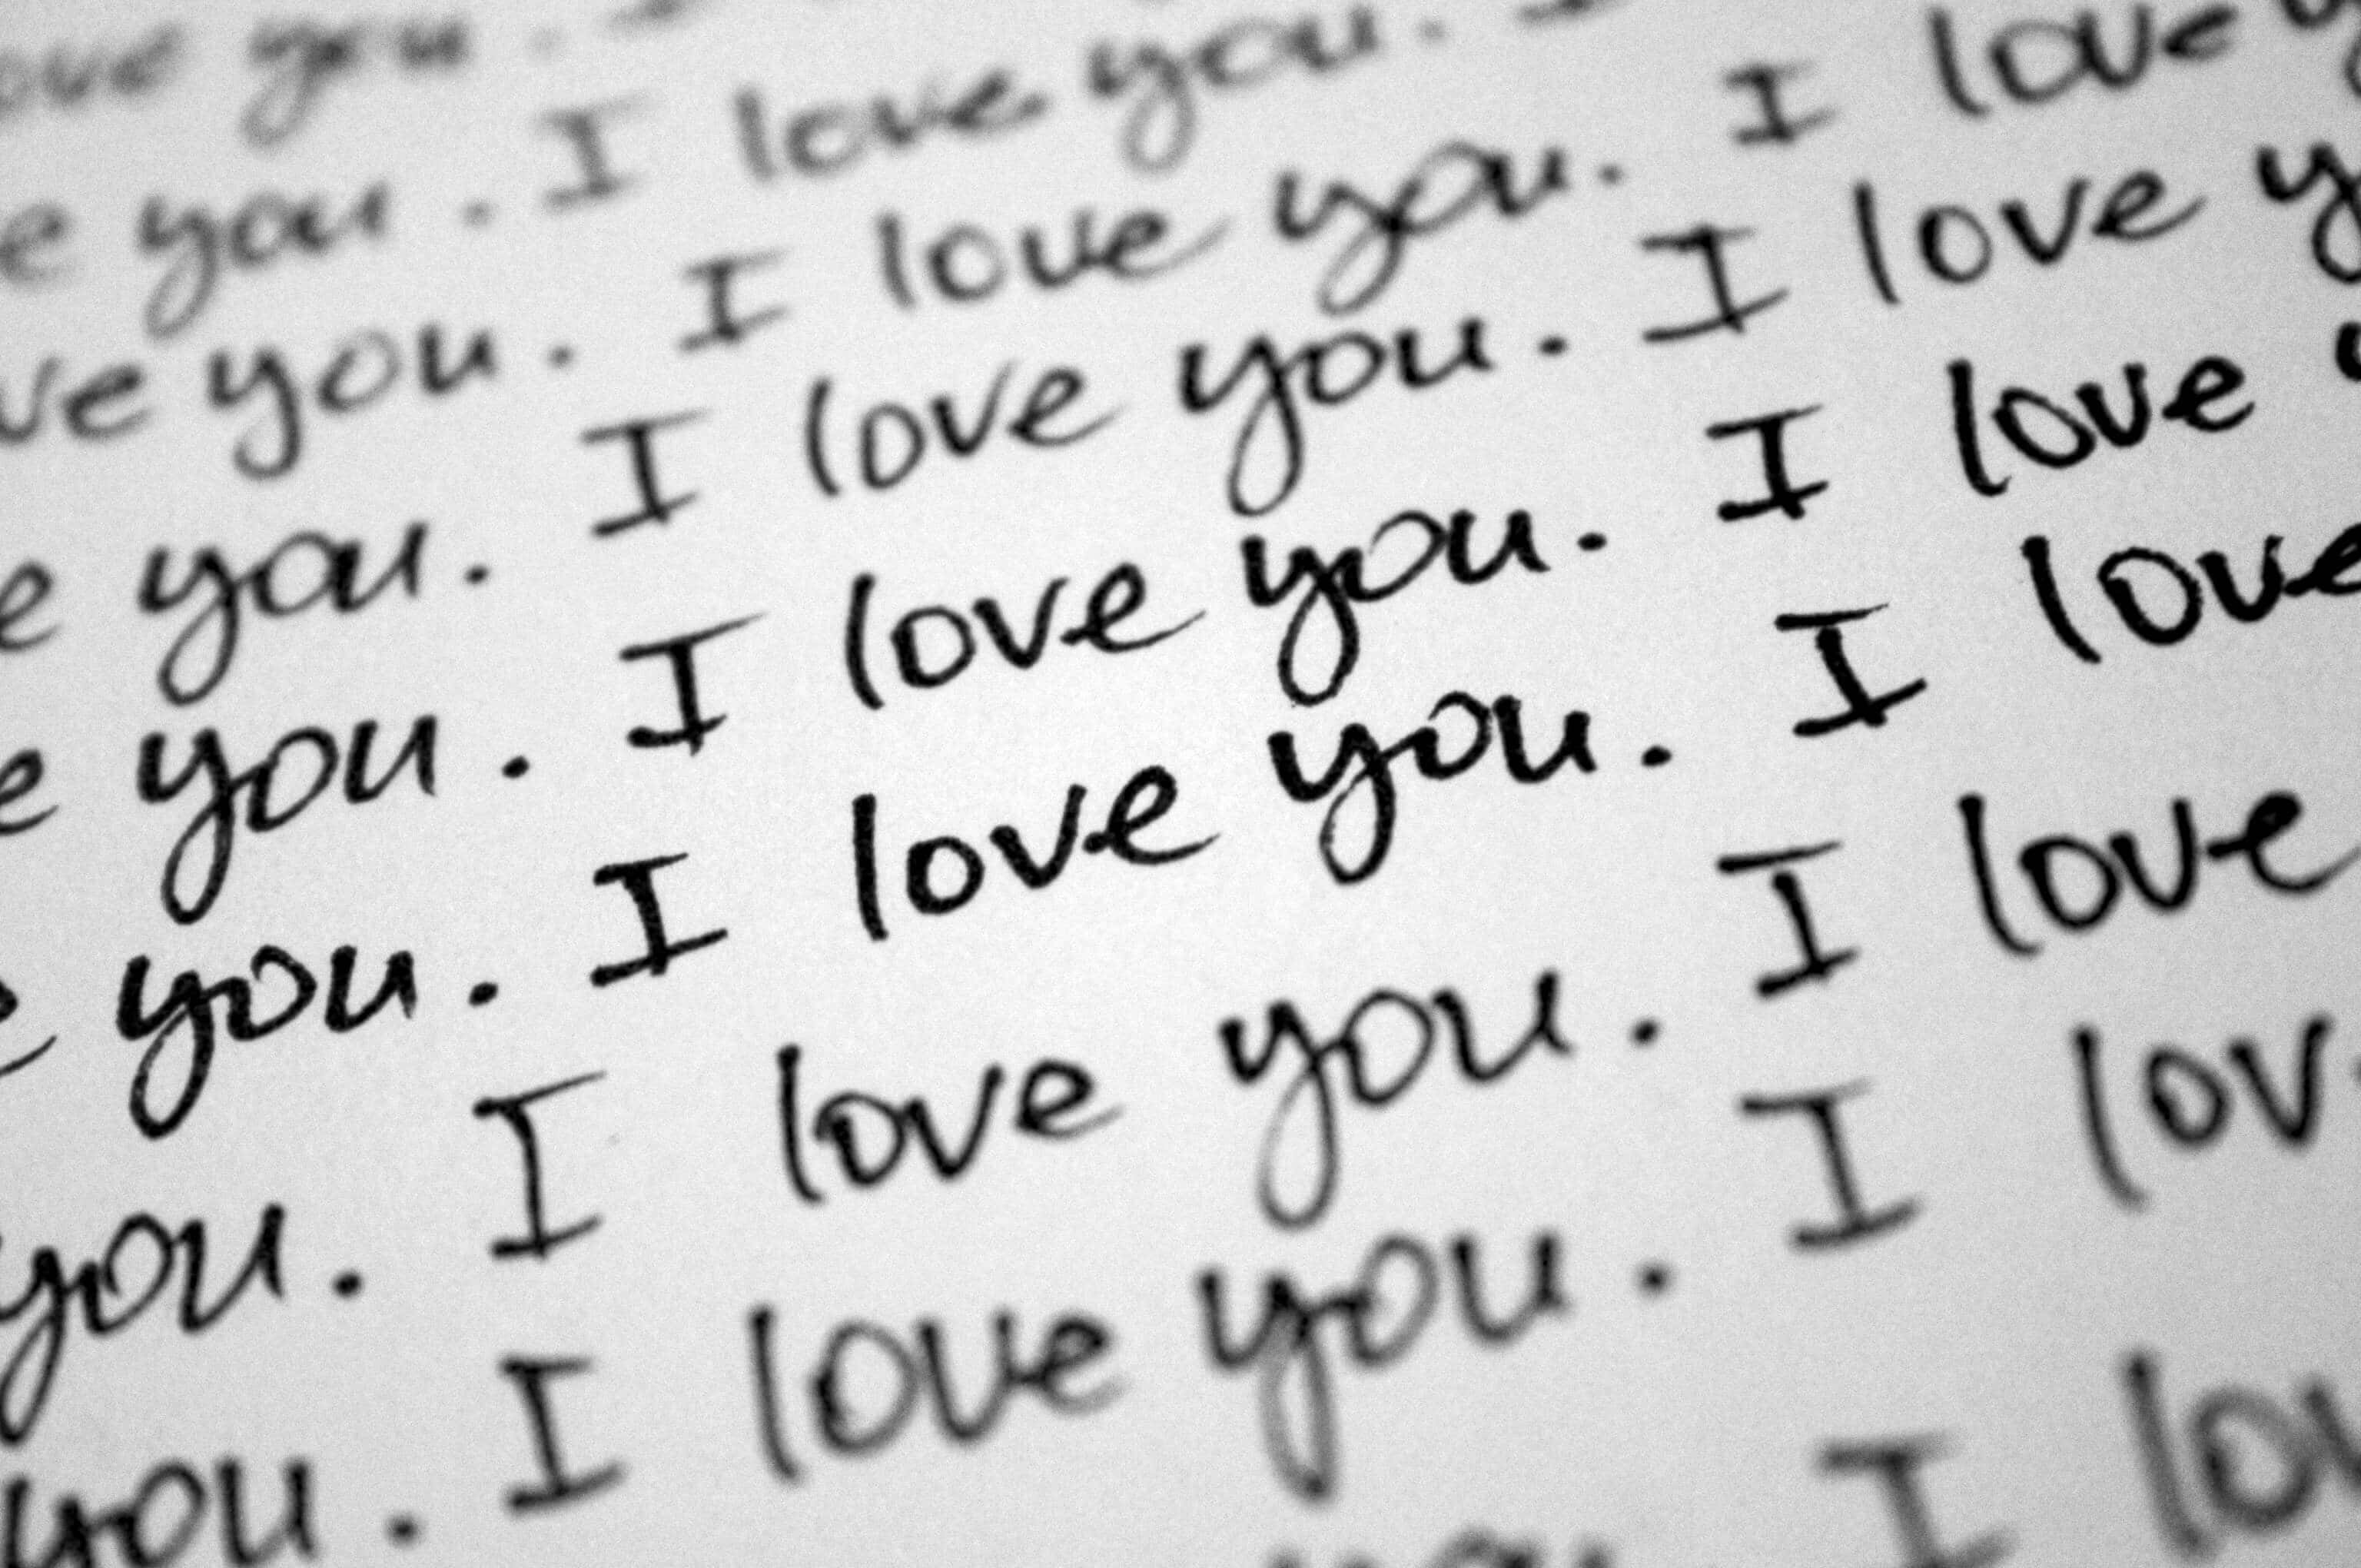 ove you . I
e you . I love you. I
ve you. I love you. I love y
e you. I love you. I love y
e you. I love you. I love y
e you. I love you. I love
you. I love you. I love
you. I love you. I lov
you I lov